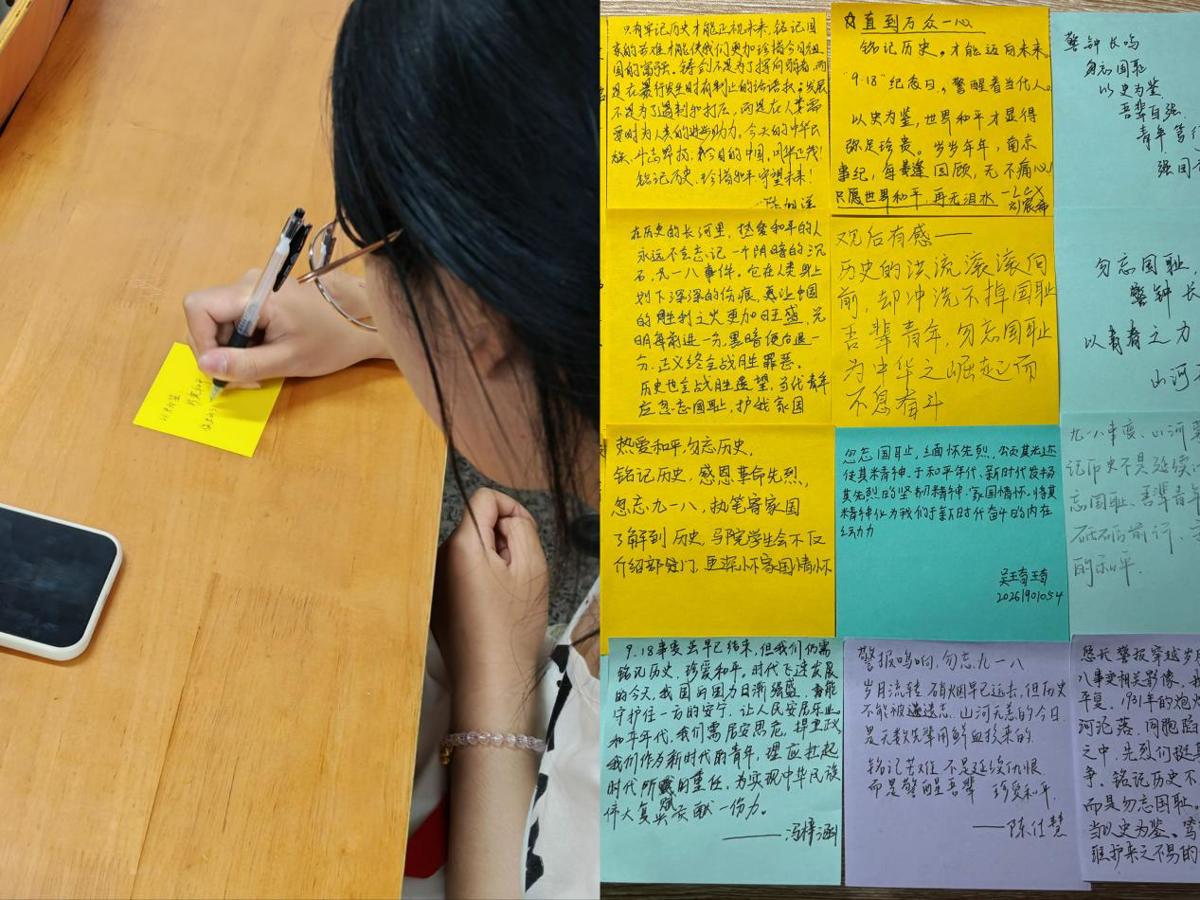 只有牢记历史才能正视未来,铭记国
家的苦难才能使我们更加珍惜今日祖
国的富强。铸剑不是为了挥向弱者,而
是在暴行发生时有制止的话语权;发展
不是为了遏制和打压,而是在人类需
要时为人类的进步助力。今天的中华民
族,斗志昂扬;今日的中国,风华正茂!
铭记历史,珍惜和平,守望未来!
☆直到万众一心
铭记历史,才能迈向未来。
"9.18"纪念日,警醒着当代人。
以史为鉴,世界和平才显得
弥足珍贵。岁岁年年,南京
事纪,每逢回顾,无不痛心
只愿世界和平,再无泪水 —LGX
警钟长鸣
勿忘国耻
以史为鉴
吾辈自强
青年笃行
强国
在历史的长河里,热爱和平的人
永远不会忘记一个阴暗的沉
石,九一八事件。它在人类身上
划下深深的伤痕,更让中国
的胜利之火更加旺盛,光
明每前进一分,黑暗便后退一
分,正义终会战胜罪恶。
历史也会战胜遗忘,当代青年
应勿忘国耻,护我家国
观后有感——
历史的洪流滚滚向
前,却冲洗不掉国耻
吾辈青年,勿忘国耻
为中华之崛起而
不息奋斗
勿忘国耻
警钟长
以青春之力
山河
热爱和平,勿忘历史,
铭记历史,感恩革命先烈,
勿忘九一八,执笔寄家国
了解到历史,马院学生会不仅
介绍部门,更深怀家国情怀
勿忘国耻,缅怀先烈,
其先烈的坚韧精神,家国情怀,将其
精神化为我们于新时代奋斗的内在
动力
20261901054
九一八事变、山河
记历史不是延续
忘国耻、吾辈青
砥砺前行、
的和平.
9.18事变虽早已结束,但我们仍需
铭记历史,珍爱和平。时代飞速发展
的今天,我国的国力日渐强盛,才能
守护住一方的安宁,让人民安居乐业
和平年代,我们需居安思危,捍卫正义
我们作为新时代的青年,理应扛起
时代所赋的重任,为实现中华民族
伟大复兴贡献一份力。
——冯梓涵
警报鸣响,勿忘九一八
岁月流转,硝烟早已远去,但历史
不能被遗忘,山河无恙的今日
是无数先辈用鲜血换来的.
铭记苦难,不是延续仇恨
而是警醒吾辈 珍爱和平.
——陈仕慧
悠长警报穿越岁
八事变相关影像,
平复。1931年的炮
河沦落,同胞陷
之中,先烈们挺
争。铭记历史不
而是勿忘国耻。
当以史为鉴。
维护来之不易的